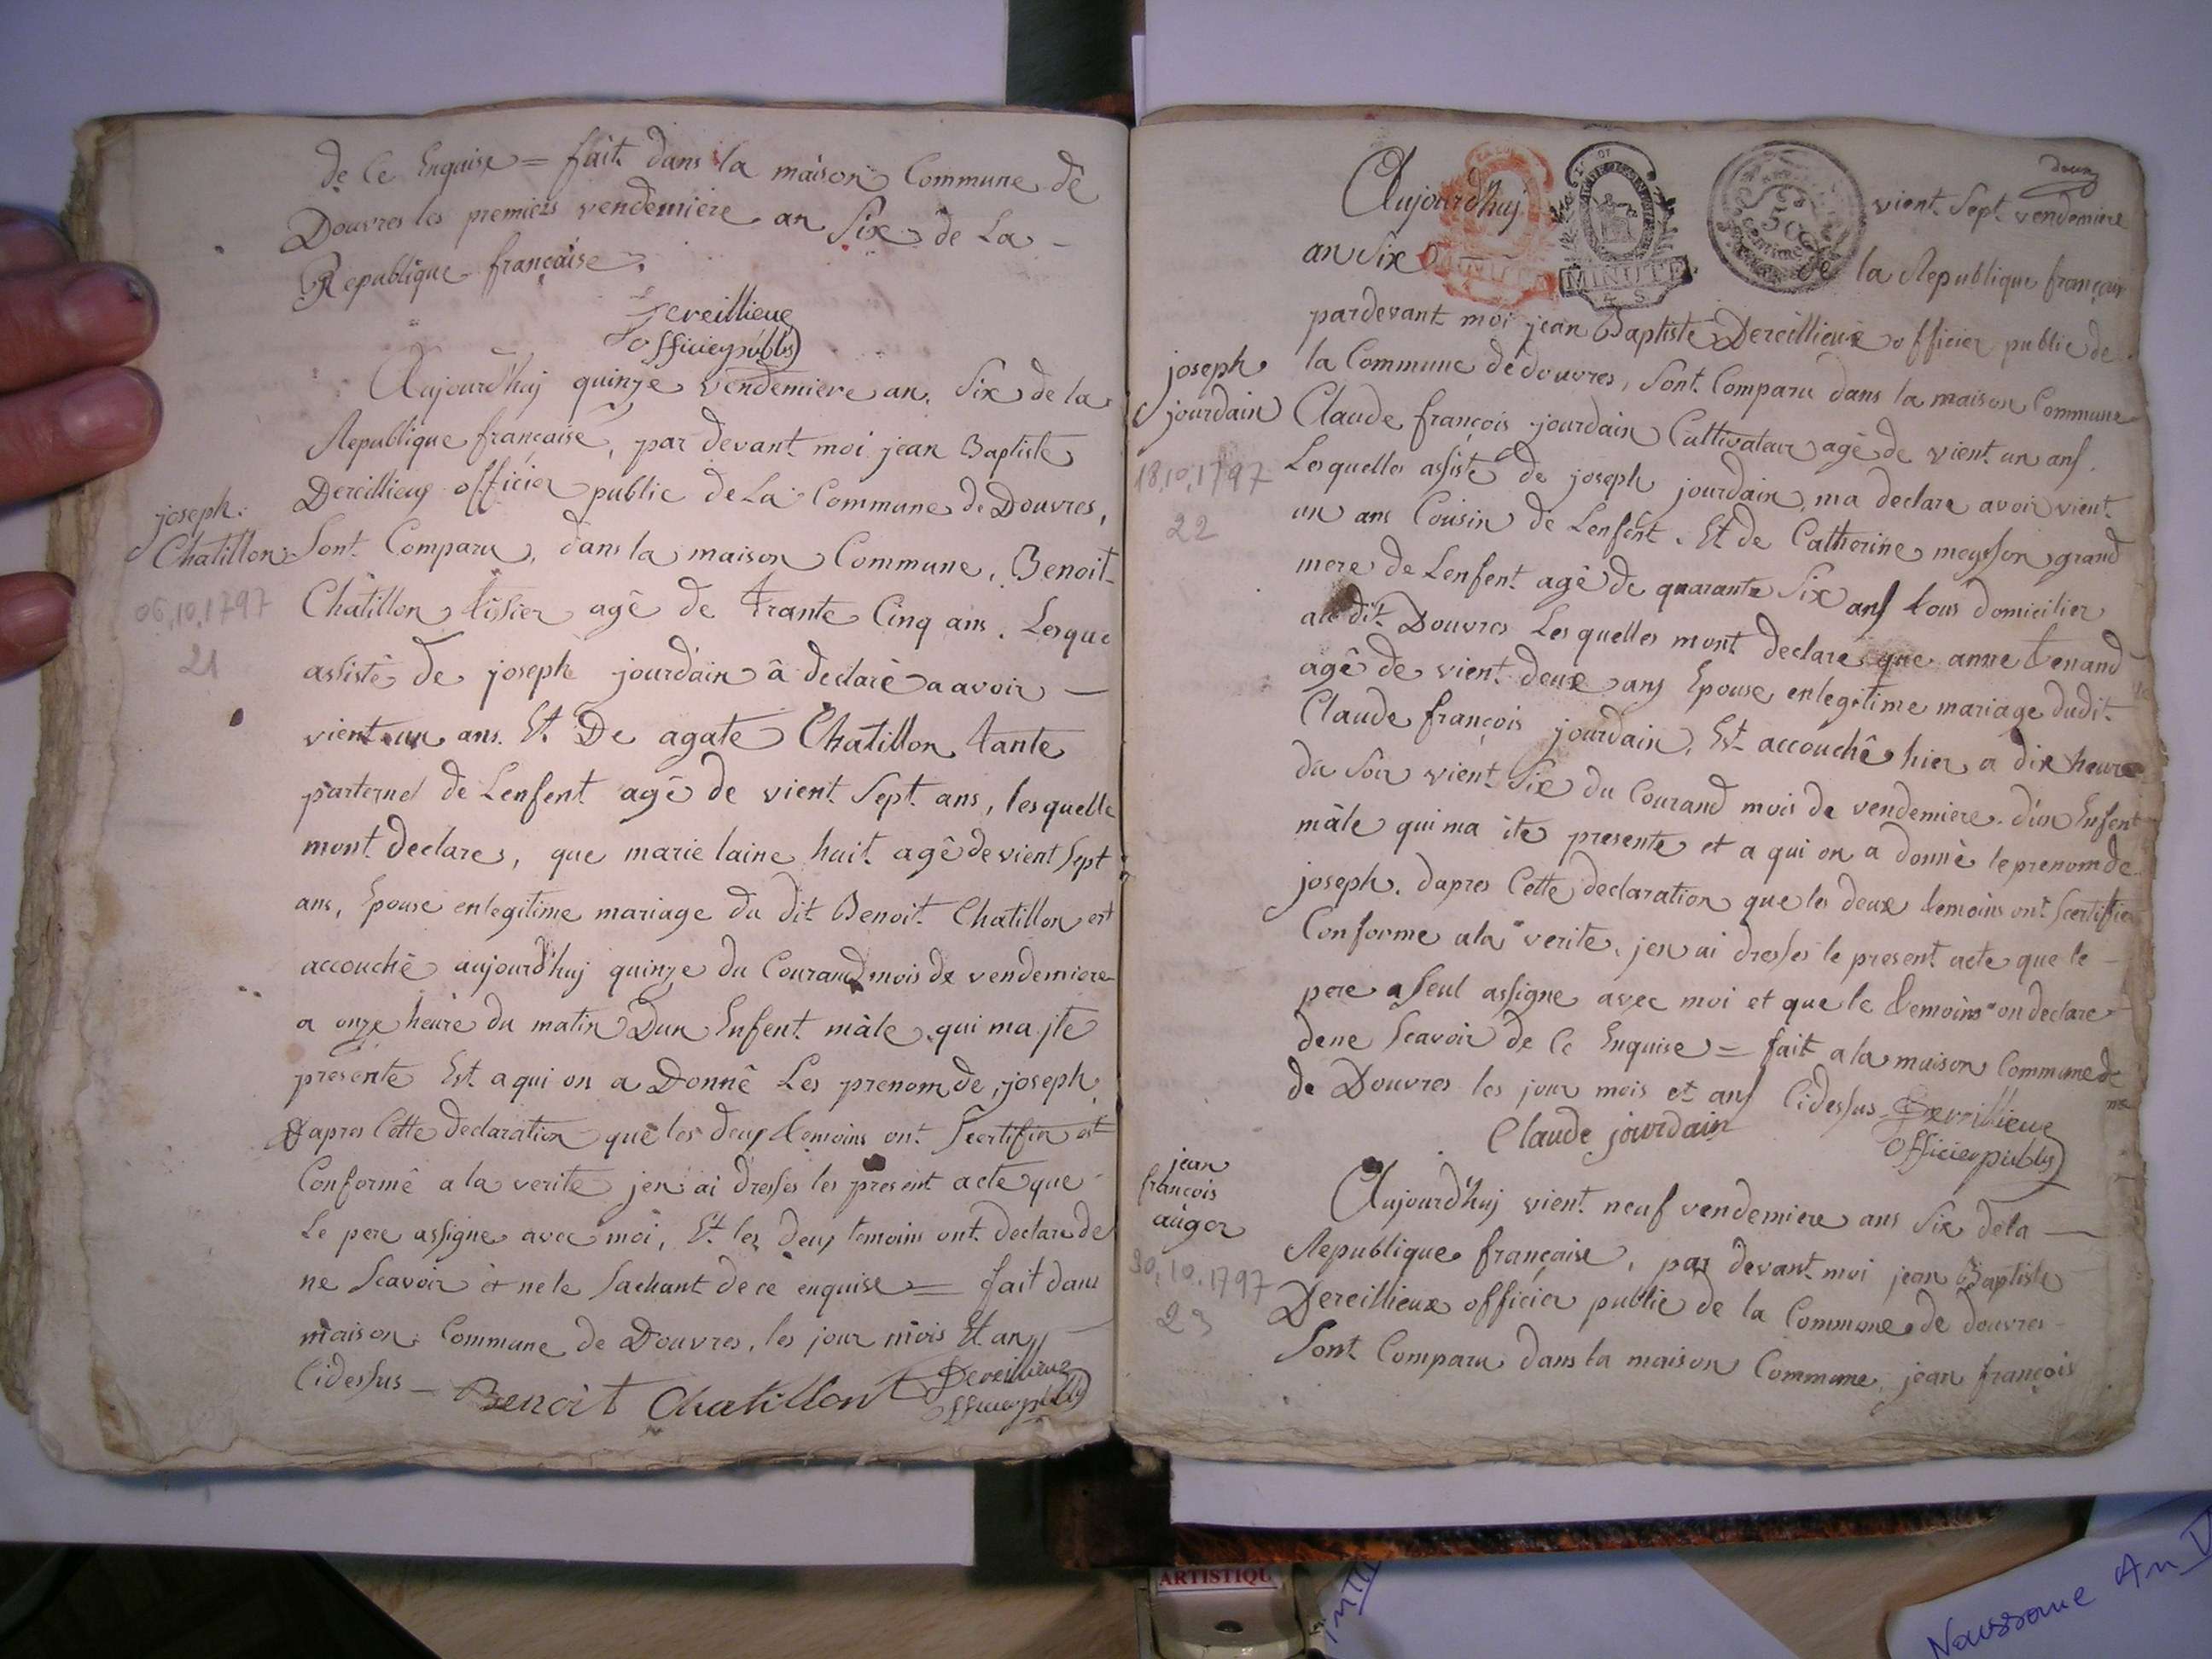 de Ce Enquise = fait dans la maison Commune de
Douvres les premiers vendemiere an Six de La -
Republique française.
Dereillieux
officier public
Aujourd'huj quinze vendemiere an Six de la
Republique française, par devant moi jean Baptiste
Dereillieux officier public de La Commune de Douvres,
joseph
Chatillon
06.10.1797
21
Sont Comparu, dans la maison Commune, Benoit
Chatillon tissier agê de trante Cinq ans. Lesque
assistê de joseph jourdain â declarê a avoir —
vient un ans. Et De agate Chatillon tante
parternel de Lenfent agê de vient Sept ans, lesquelle
mont declare, que marie laine huit agê de vient Sept
ans, Epouse en legitime mariage du dit Benoit Chatillon est
accouchê aujourd'huj quinze du Courand mois de vendemiere
a onze heure du matin Dun Enfent mâle qui ma jte
presente Est a qui on a Donnê Les prenom de joseph
Dapres Cette declaration que les deux temoins ont Scertifier est
Conformê a la verite jen ai dresses les present acte que
Le pere assigne avec moi, Et les deux temoins ont declare de
ne Scavoir et ne le Sachant de ce enquise = fait dans
maison Commune de Douvres, les jour mois Et an
Cidessus — Benoit Chatillon Dereillieux
officier public
douz
Aujourd'huj vient Sept vendemiere
MINUTE
4 S
50
an Six de la Republique français
pardevant moi jean Baptiste Dereillieux officier public de
joseph
jourdain
18.10.1797
22
la Commune de douvres, Sont Comparu dans la maison Commune
Claude françois jourdain Cultivateur agê de vient un ans.
Lesquelles assistê de joseph jourdain, ma declare avoir vient
un ans Cousin de Lenfent. Et de Catherine meysson grand
mere de Lenfent agê de quarante Six ans tous domicilier
au dit Douvres Les quelles mont declare que anne tenand
agê de vient deux ans Epouse en legitime mariage dudit
Claude françois jourdain, Est accouchê hier a dix heure
du Soir vient Six du Courand mois de vendemiere. d'un Enfent
mâle qui ma ite presente et a qui on a donnê le prenom de
joseph. dapres Cette declaration que les deux temoins ont Scertifier
Conforme a la verite. jen ai dresses le present acte que le -
pere a Seul assigne avec moi et que le temoins on declare
dene Scavoir de Ce Enquise = fait a la maison Commune de
de Douvres les jour mois et ans Cidessus Dereillieux
Claude jourdain
officier public
jean
francois
auger
30.10.1797
23
Aujourd'huj vient neuf vendemiere ans Six de la —
Republique française, par devant moi jean Baptiste
Dereillieux officier public de la Commune de douvres
Sont Comparu dans la maison Commune, jean françois
ARTISTIQU
Naissance An V